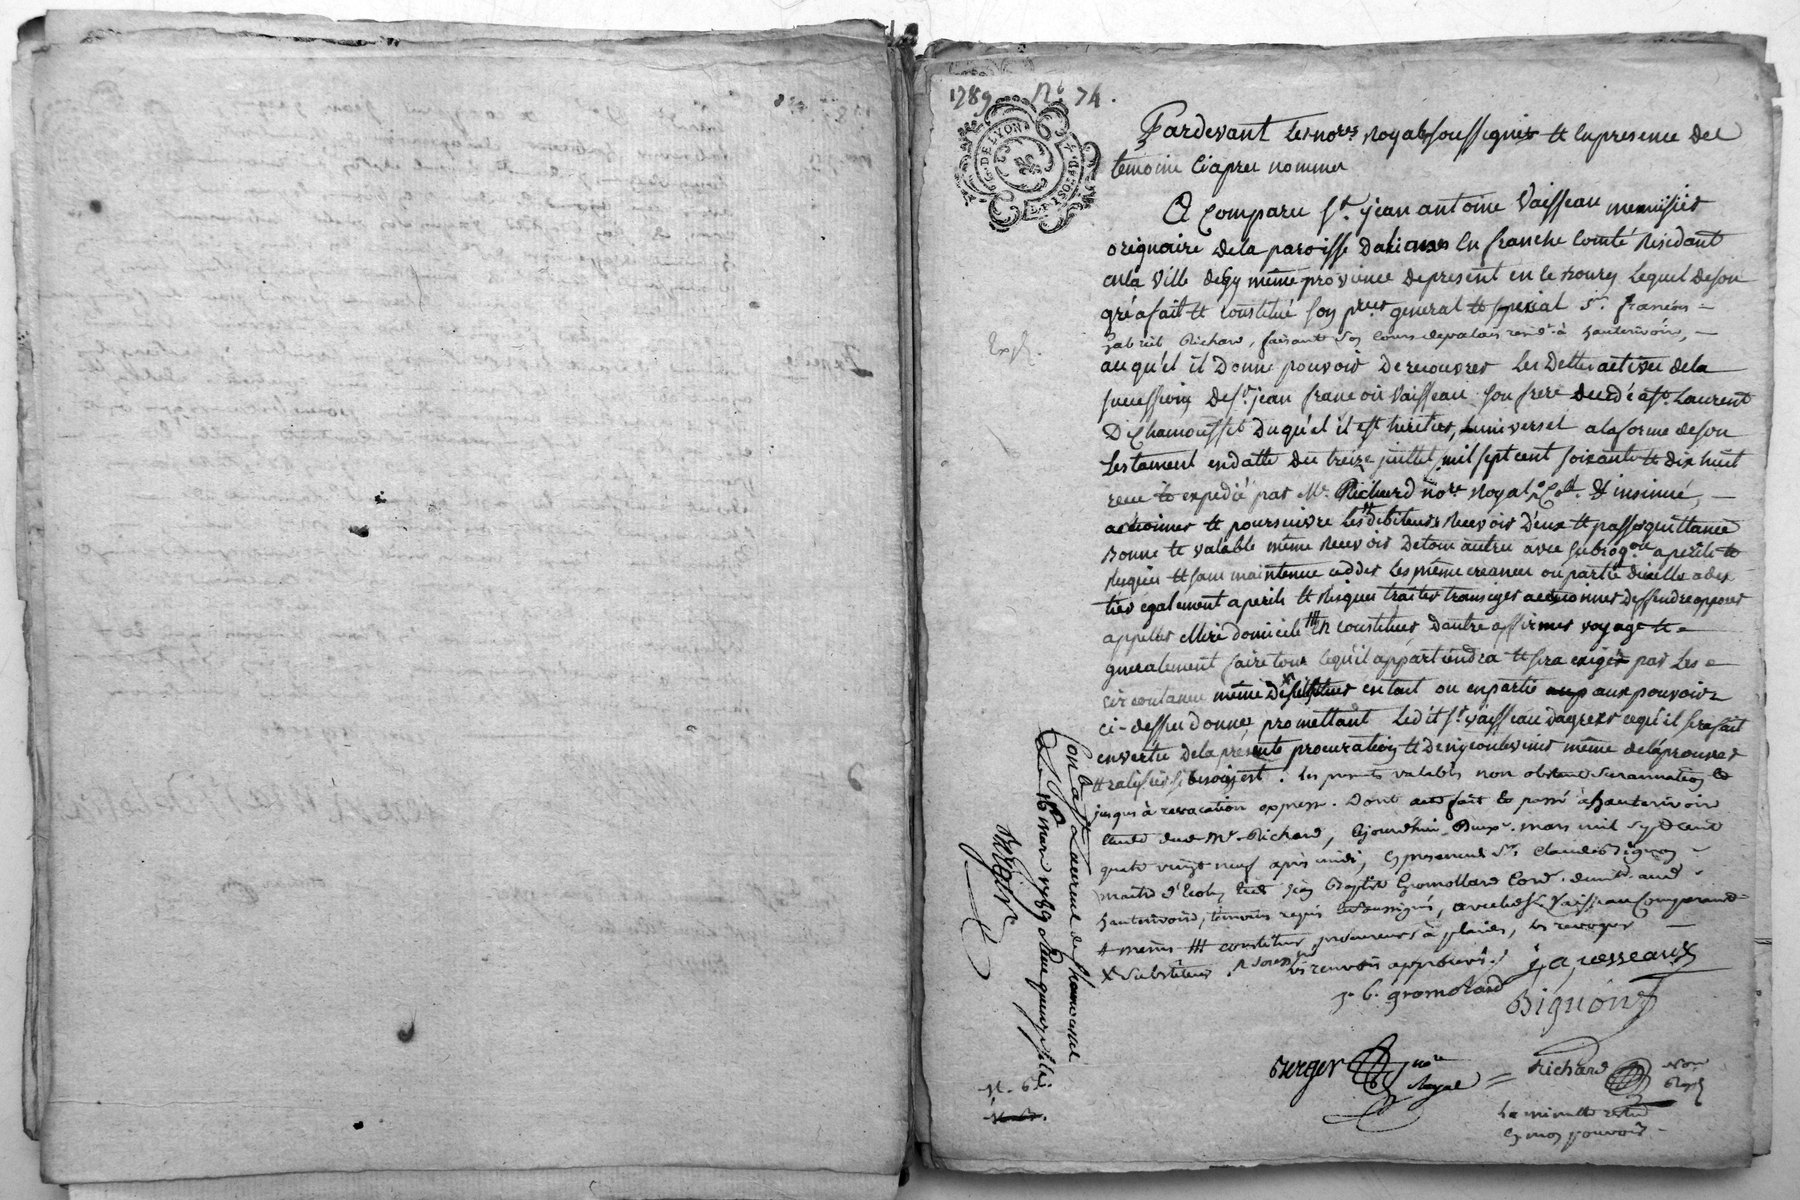 1789 N.º 74.
G. DE LYON
Pardevant les no.res royaux soussignés et en presence des
temoins ci apres nommes
A comparu s.r jean antoine Vaisseau menuisier
originaire de la paroisse en franche Comté residant
en la Ville de Gy même province de present en le Bourg lequel de son
gré a fait et constitué son general et special S.r francois
Gabriel Richard, faisant ses cours de palais resid.t à hauterivoire,
auquel il donne pouvoir de recouvrer les dettes actives de la
succession de s.r jean francois Vaisseau son frere decedé a s.t Laurent
De Chamousset duquel il est heritier universel a la forme de son
testament en datte du treize juillet mil sept cent soixante et dix huit
recu et expedié par M.e Richard no.re royal & insinué,
actionner et poursuivre les debiteurs recevoir d'eux et passer quittance
bonne et valable même recevoir de tout autres avec subrog.on a perils et
risques et sans maintenue cedder les même creances ou partie dicelle a des
tier egalement a perils et risques traiter transiger actionner deffendre opposer
appeller elire domicile en constituer dautre affirmer voyage et
generalement faire tout ce qu'il appartiendra et sera exigé par les
circonstances même en tout ou en partie aux pouvoirs
ci-dessus donnes, promettant ledit s.r vaisseau d'agreer ce qu'il sera fait
en vertu de la présente procuration et de n'y contrevenir même de l'approuver
et ratifier si besoin est. les presentes valables non obstant surannation et
jusques à revocation expresse. Dont acte fait et passé à hauterivoire
etude dud. M.e Richard, aujourdhuy mars mil sept cent
quatre vingt neuf après midi, en presence de S.r Claude Bignon
maitre d'Ecole, et de Jean Baptiste Gromollard Cord. demt. aud.
hauterivoire, temoins requis et soussignés, avec led. S.r Vaisseau Comparant
mêmes constituer procureurs à plaids, les revoquer
X substituer les renvois approuvés.
j. a. vesseaux
j. b. gromolard Bignon
Berger no.re royal Richard no.re Royal
La minute restée
en mon pouvoir
Con.lé a S.t Laurent de Chamousset
Le 16 mars 1789 Reçu quinze sols.
Berger